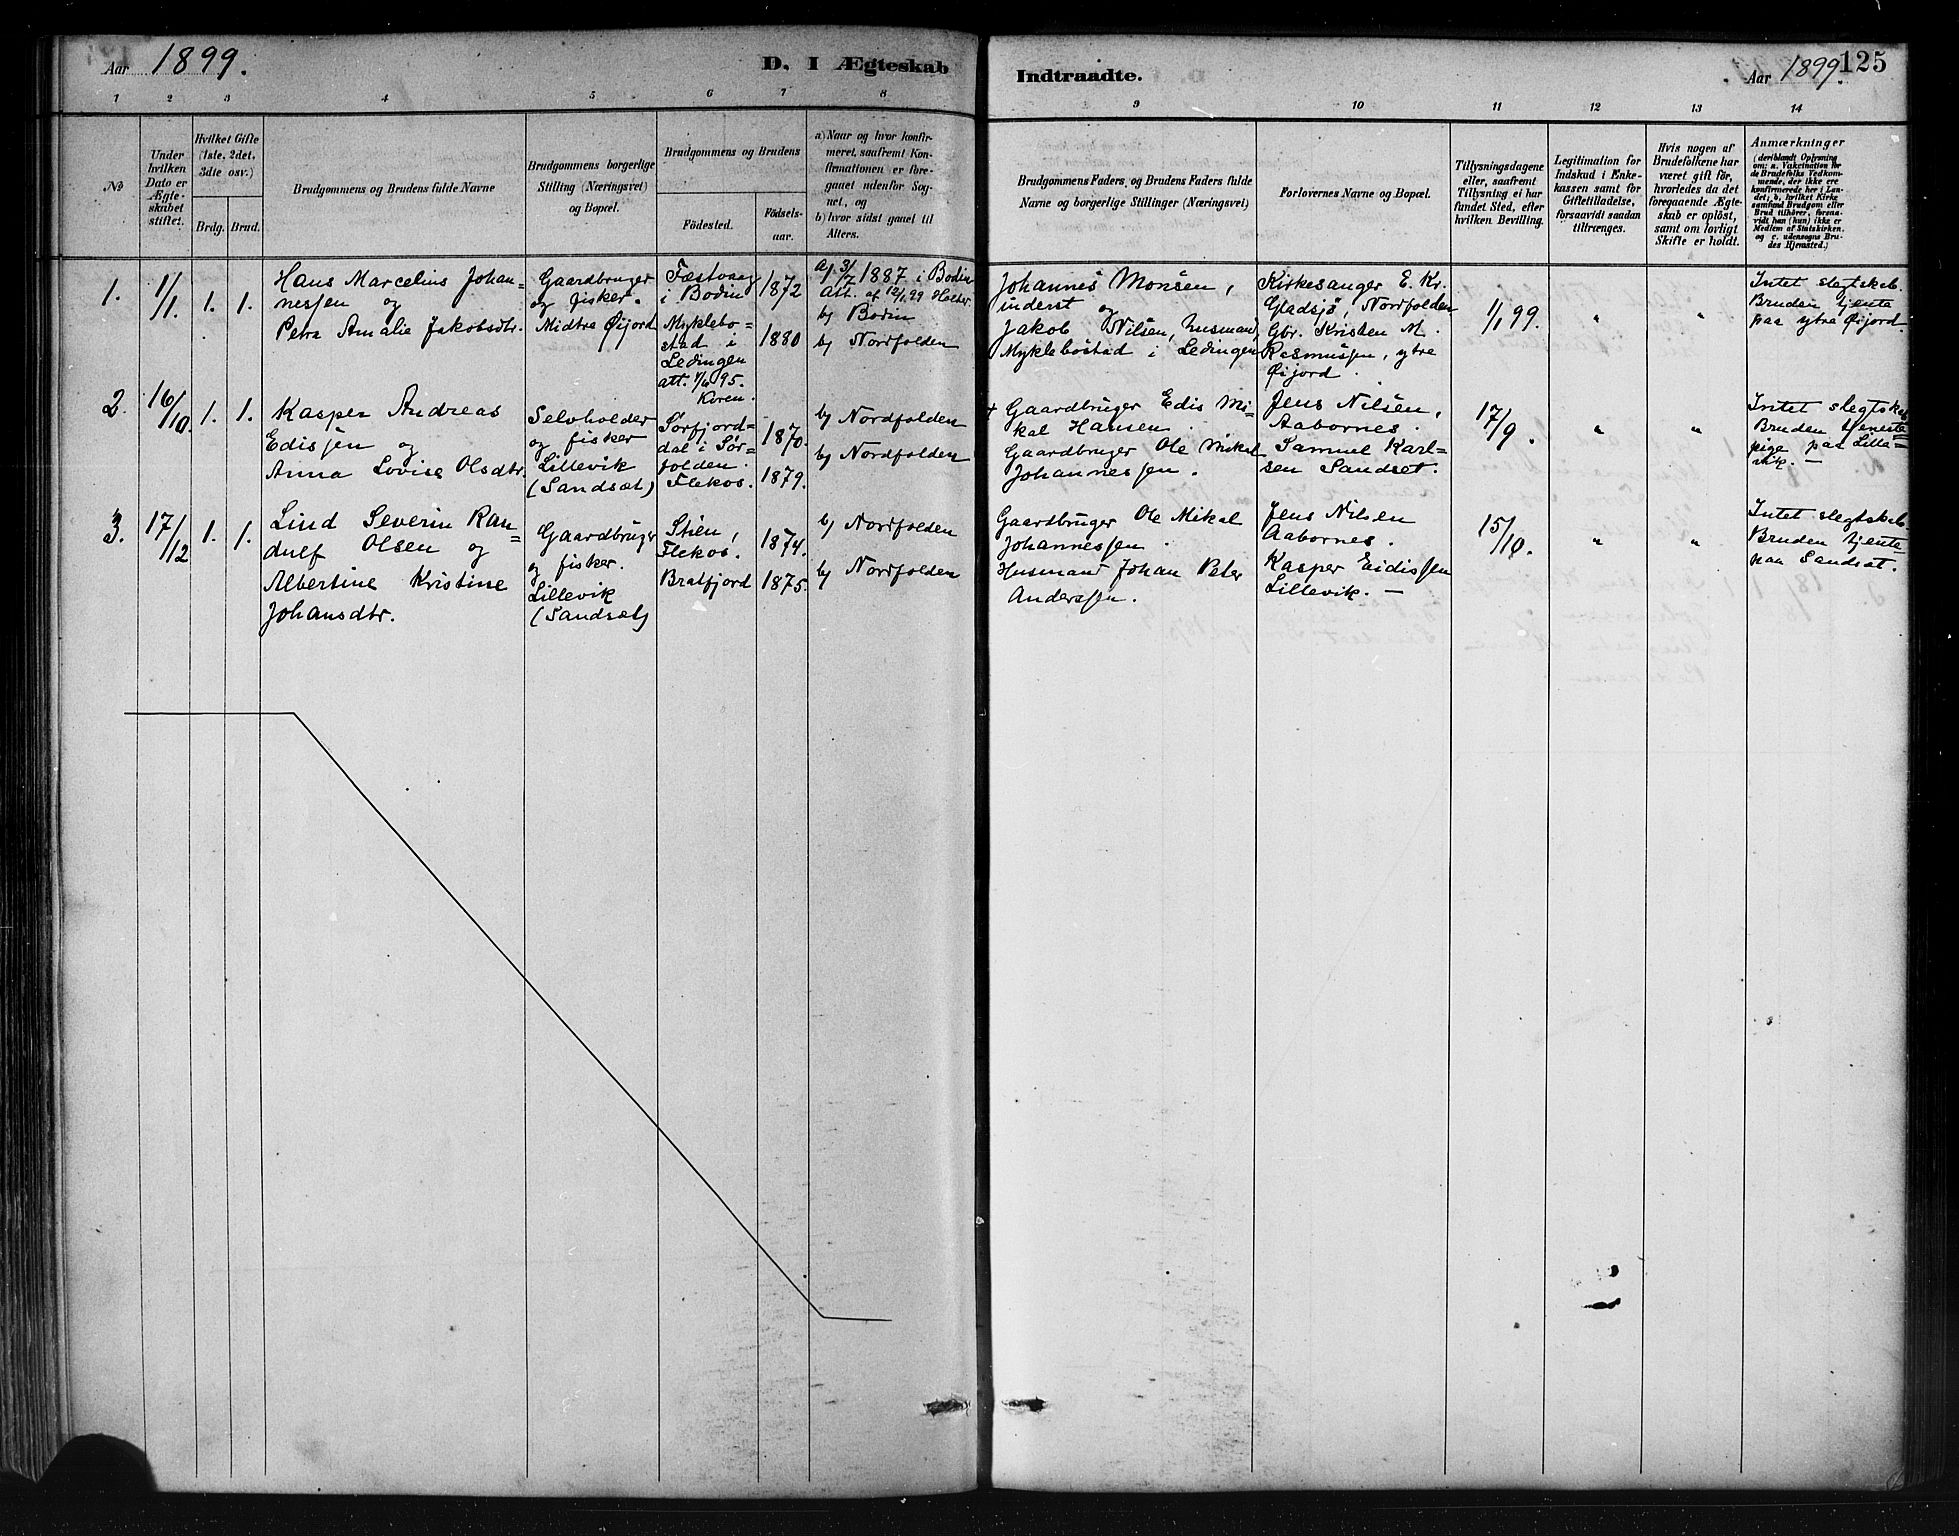 Aar 1899.
D. I Ægteskab
Indtraadte.
Aar 1899.
125
1 2 3 4 5 6 7 8 9 10 11 12 13 14
No
Under
hvilken
Dato er
Ægte-
skabet
stiftet.
Hvilket Gifte
(1ste, 2det,
3die osv.)
Brdg. Brud.
Brudgommens og Brudens fulde Navne
Brudgommens borgerlige
Stilling (Næringsvei)
og Bopæl.
Brudgommens og Brudens
Fødested.
Fødsels-
aar.
a) Naar og hvor konfir-
meret, saafremt Kon-
firmationen er fore-
gaaet udenfor Sog-
net, og
b) hvor sidst gaaet til
Alters.
Brudgommens Faders, og Brudens Faders fulde
Navne og borgerlige Stillinger (Næringsvei)
Forlovernes Navne og Bopæl.
Tillysningsdagene
eller, saafremt
Tillysning ei har
fundet Sted, efter
hvilken Bevilling.
Legitimation for
Indskud i Enke-
kassen samt for
Giftetilladelse,
forsaavidt saadan
tiltrænges.
Hvis nogen af
Brudefolkene har
været gift før,
hvorledes da det
foregaaende Ægte-
skab er opløst,
samt om lovligt
Skifte er holdt.
Anmærkninger
(deriblandt Oplysning
om: a. Vakcination for
de Brudefolks Vedkom-
mende, der ikke ere
konfirmerede her i Lan-
det; b. hvilket Kirke
samfund Brudgom eller
Brud tilhører, forsaa-
vidt han (hun) ikke er
Medlem af Statskirken,
og c. udensogns Bru-
des Hjemsted.)
1.
1/1.
1. 1.
Hans Marcelius Johan-
nessen og
Petra Amalie Jakobsdtr.
Gaardbruger
og fisker.
Midtre Øijord
Fæstvaag
i Bodin
Myklebo-
stad i
Lødingen
att. 4/6 95.
1872
1880
a) 3/7 1887 i Bodin
Att. af 12/1 99
b) Bodin
b) Nordfolden
Johannes Monsen,
inderst og
Jakob Nilsen, husmand,
Myklebostad i Lødingen
Kirkesanger E. Kr.
Gladsjø, Nordfolden
Gbr. Kristen M.
Rasmussen, ytre
Øijord.
1/1 99.
"
"
Intet slegtskab.
Bruden tjente
paa ytre Øijord
2.
16/10.
1. 1.
Kasper Andreas
Edissen og
Anna Lovise Olsdtr.
Selvholder
og fisker
Lillevik
(Sandsæt)
Sørfjord-
dal i Sør-
folden.
Flekos.
1870.
1879.
b) Nordfolden
b) Nordfolden
+ Gaardbruger Edis Mi-
kal Hansen.
Gaardbruger Ole Mikal
Johannessen.
Jens Nilsen,
Aabornes.
Samuel Karl-
sen Sandset.
17/9.
"
"
Intet slegtskab
Bruden tjeneste
pige paa Lille-
vik. —
3.
17/12
1. 1.
Lind Severin Ran-
dulf Olsen og
Albertine Kristine
Johansdtr.
Gaardbruger
og fisker.
Lillevik
(Sandsæt)
Stien,
Flekos.
Bratfjord
1874.
1875.
b) Nordfolden
b) Nordfolden
Gaardbruger Ole Mikal
Johannessen.
Husmand Johan Peter
Anderssen.
Jens Nilsen
Aabornes.
Kasper Eidissen
Lillevik. —
15/10.
"
"
Intet slegtskab.
Bruden tjente
paa Sandsæt.